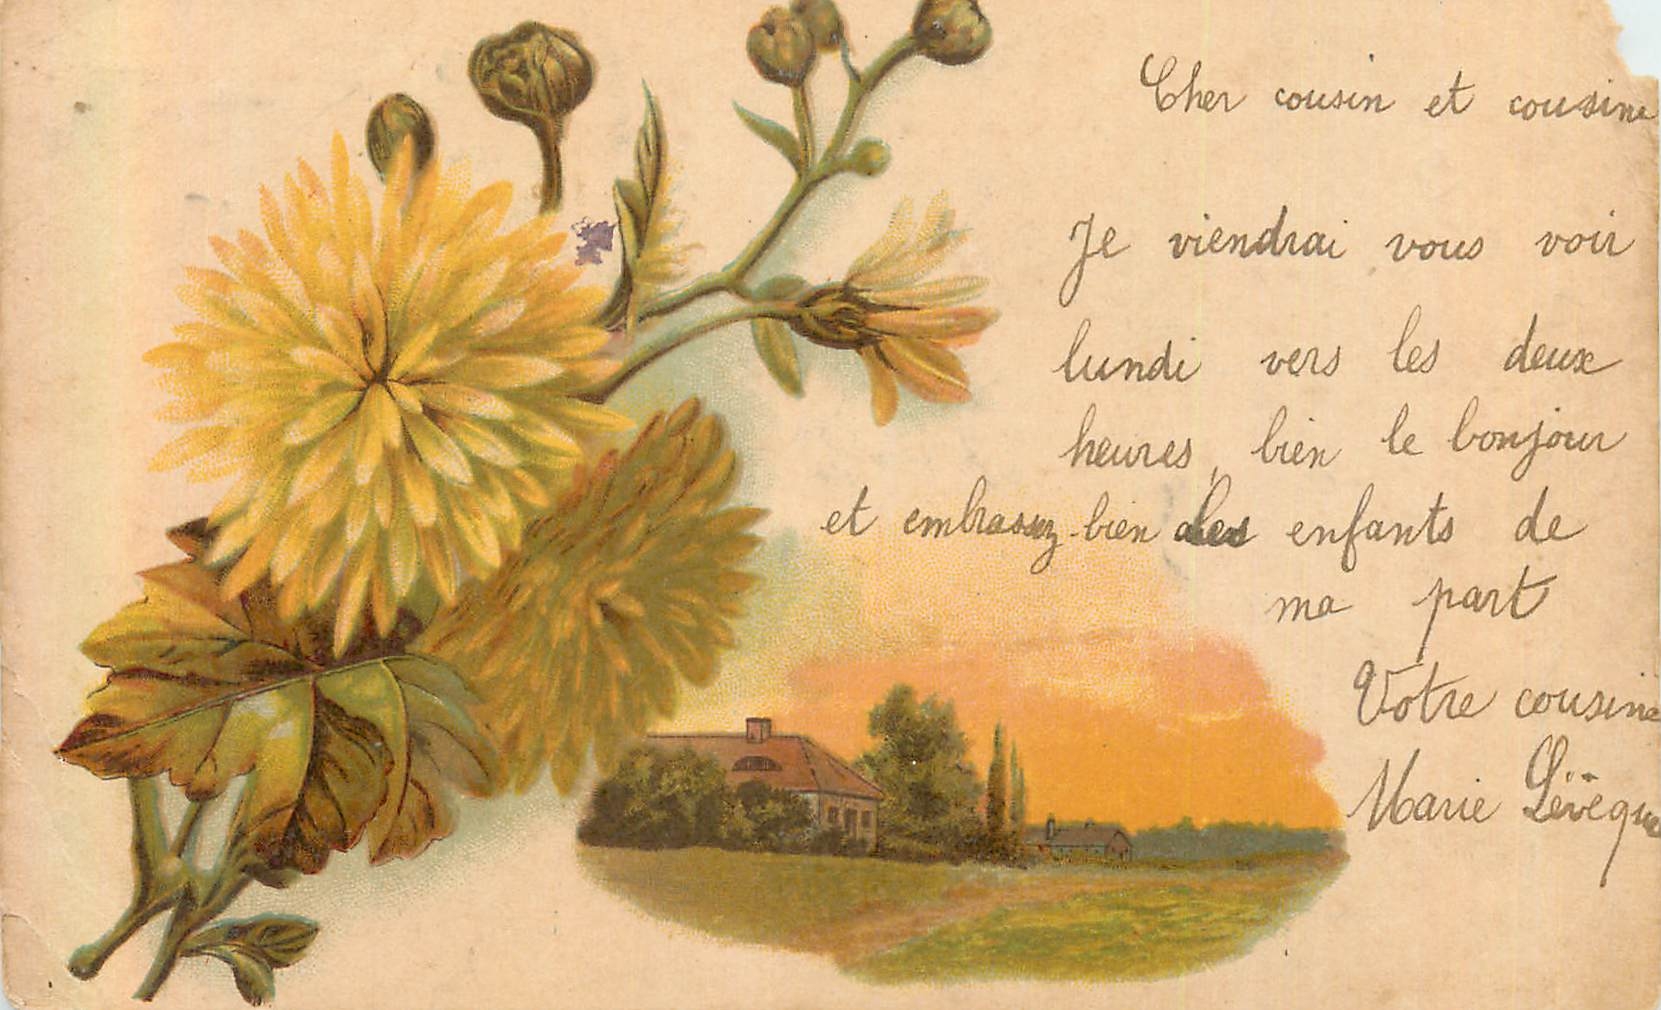 Cher cousin et cousine
Je viendrai vous voir
lundi vers les deux
heures, bien le bonjour
et embrassez bien les enfants de
ma part
Votre cousine
Marie Lévêque